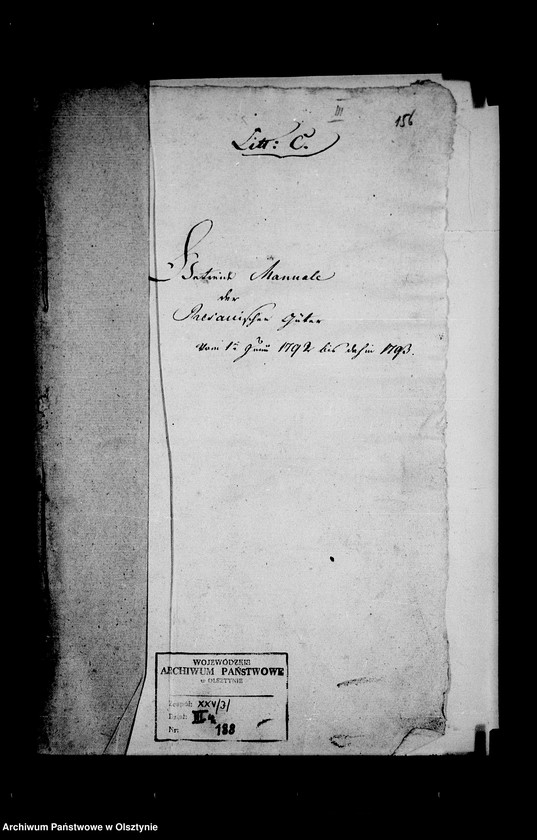 III
156
Litt: C.
Getreide Manuale
der
Güter
vom 1t Juny 1792 bis dahin 1793.
WOJEWÓDZKIE
ARCHIWUM PAŃSTWOWE
w OLSZTYNIE
Zespół: XXV/3/
Dział: III
Nr: 188
Archiwum Państwowe w Olsztynie